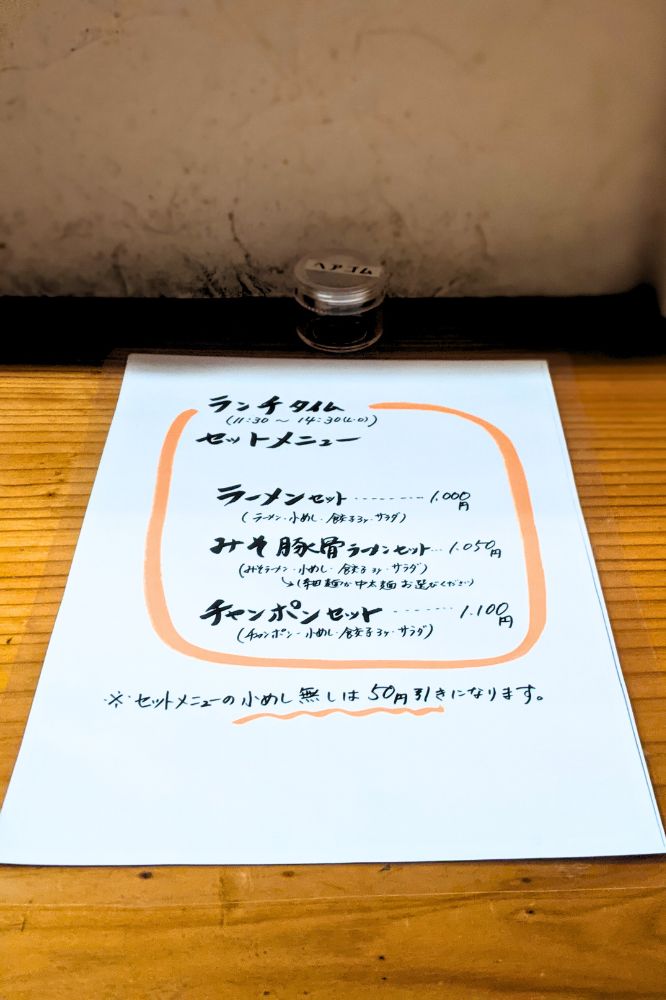 ヘアゴム
ランチタイム
(11:30～14:30(L.O)
セットメニュー
ラーメンセット---------1,000円
(ラーメン・小めし・餃子3ケ・サラダ)
みそ豚骨ラーメンセット...1,050円
(みそラーメン・小めし・餃子3ケ・サラダ)
↳(細麺か中太麺お選びください)
チャンポンセット-------1,100円
(チャンポン・小めし・餃子3ケ・サラダ)
※セットメニューの小めし無しは50円引きになります。